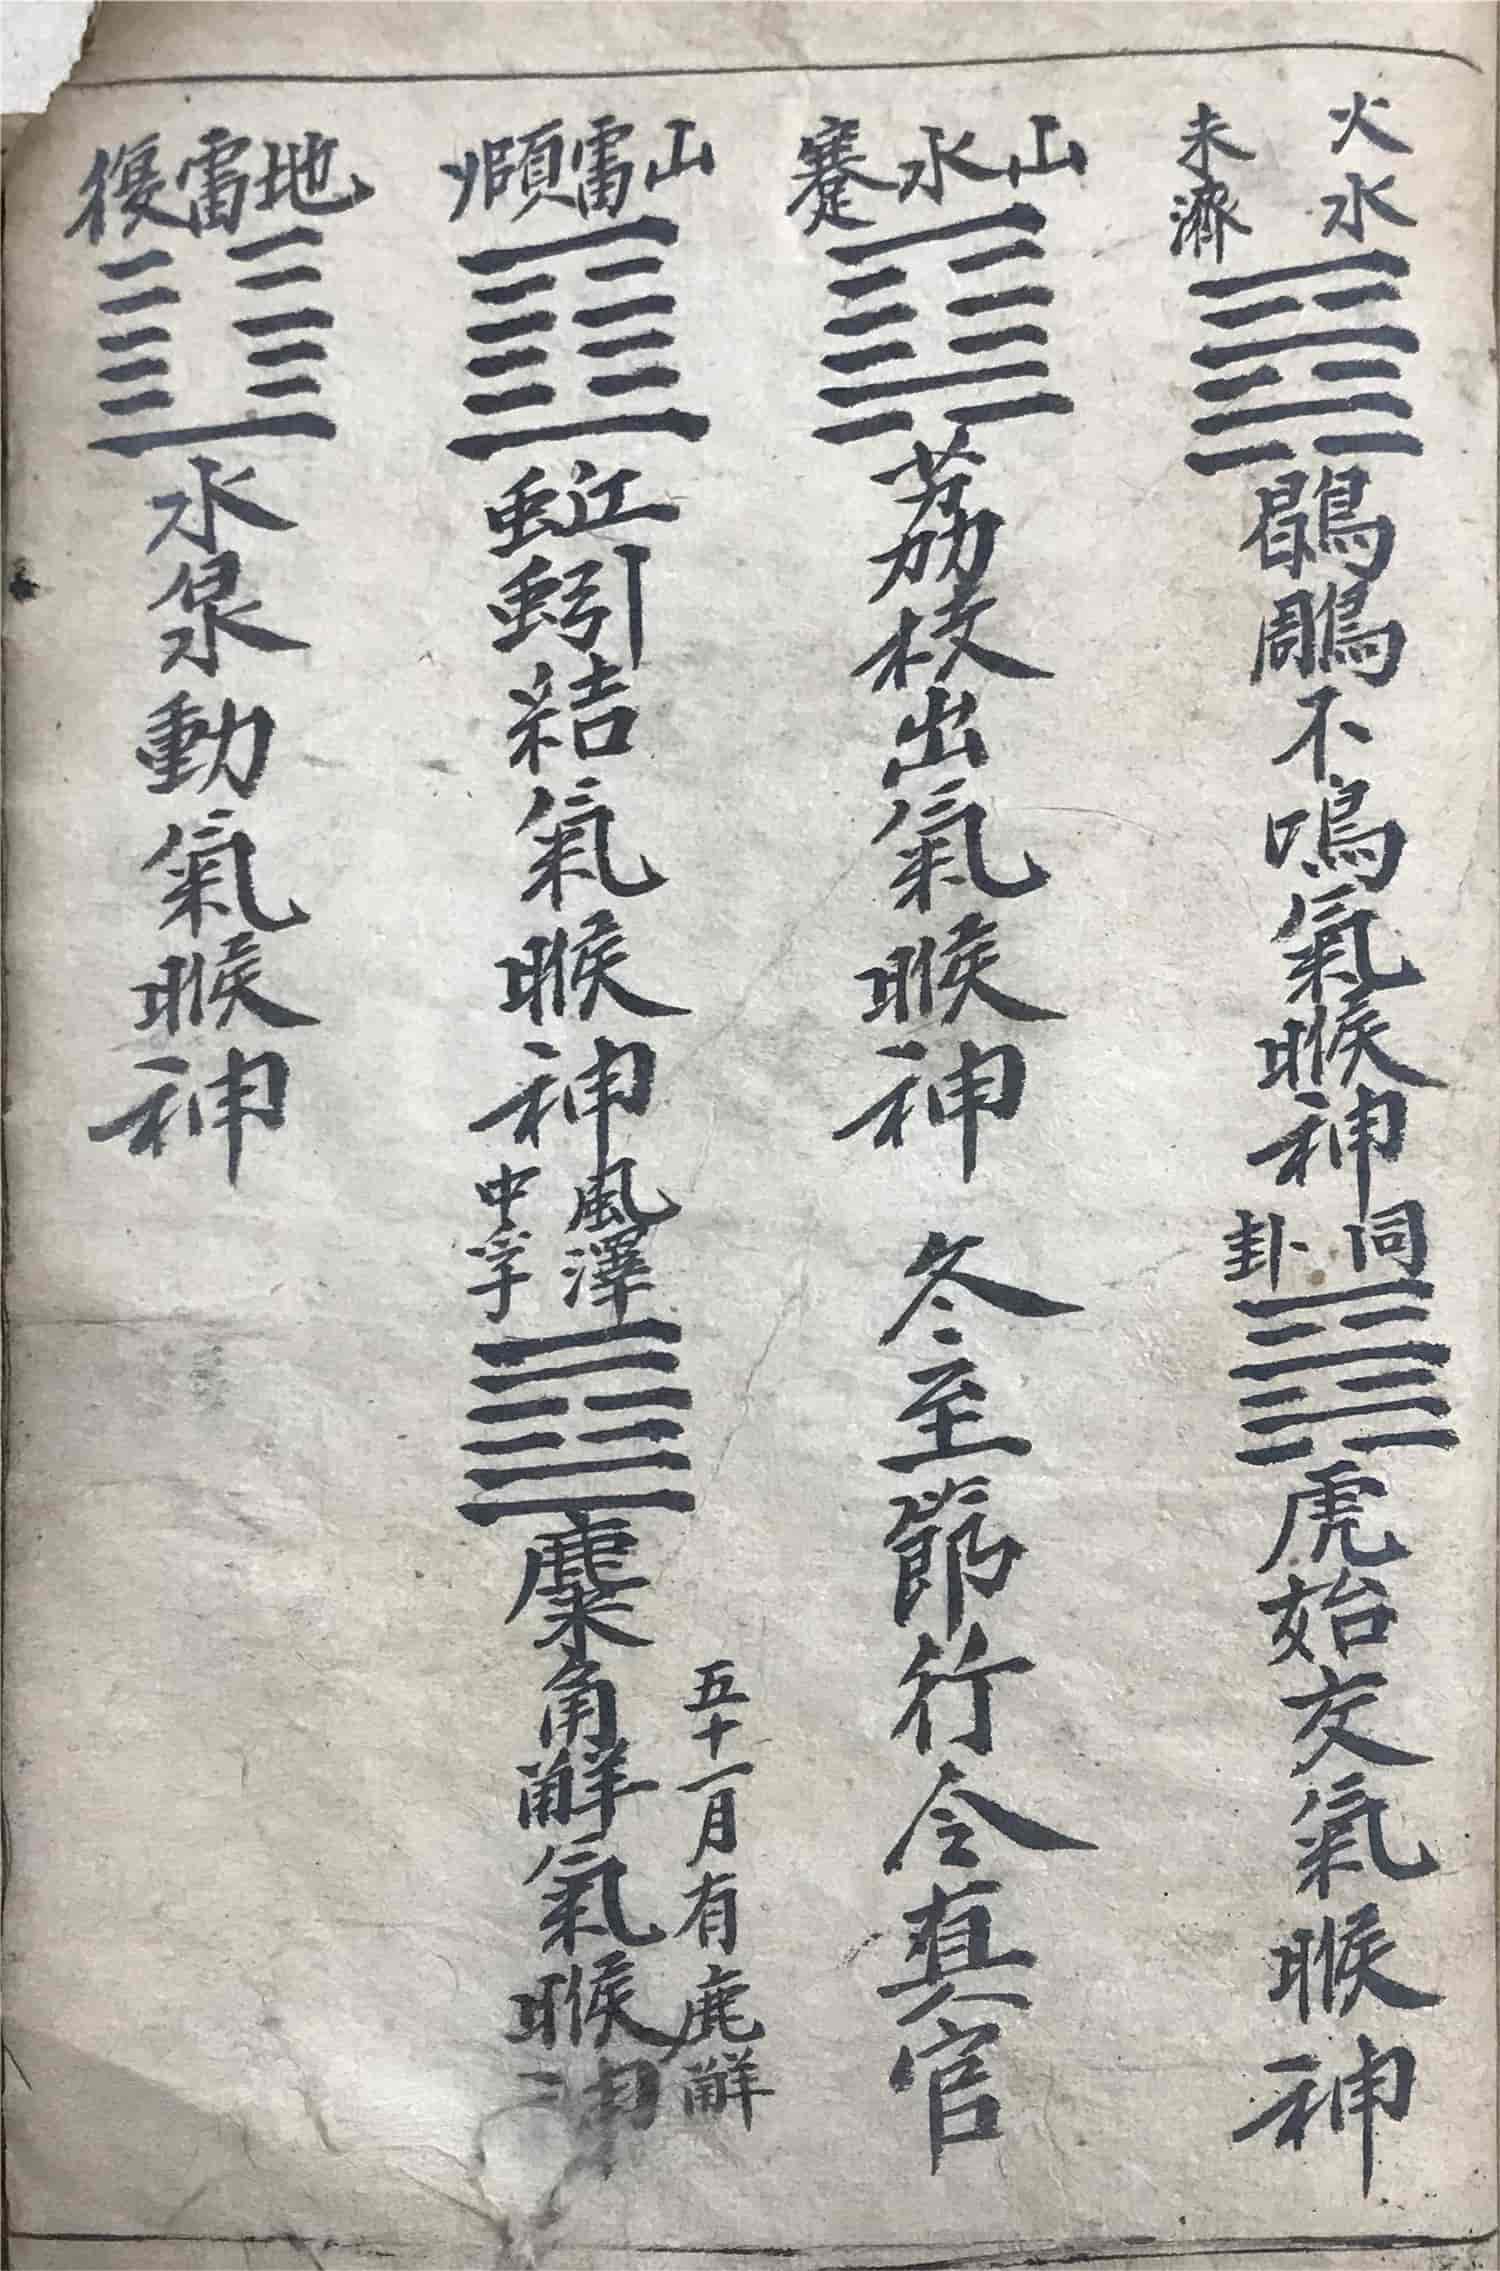 火水
未濟
鶡鵰不鳴氣候神
同
卦
虎始交氣候神
山水蹇
荔枝出氣候神
冬至節行令真官
山雷頤
蚯蚓結氣候神
風澤
中孚
麋角觧氣候神
五十一月有鹿觧
地雷復
水泉動氣候神